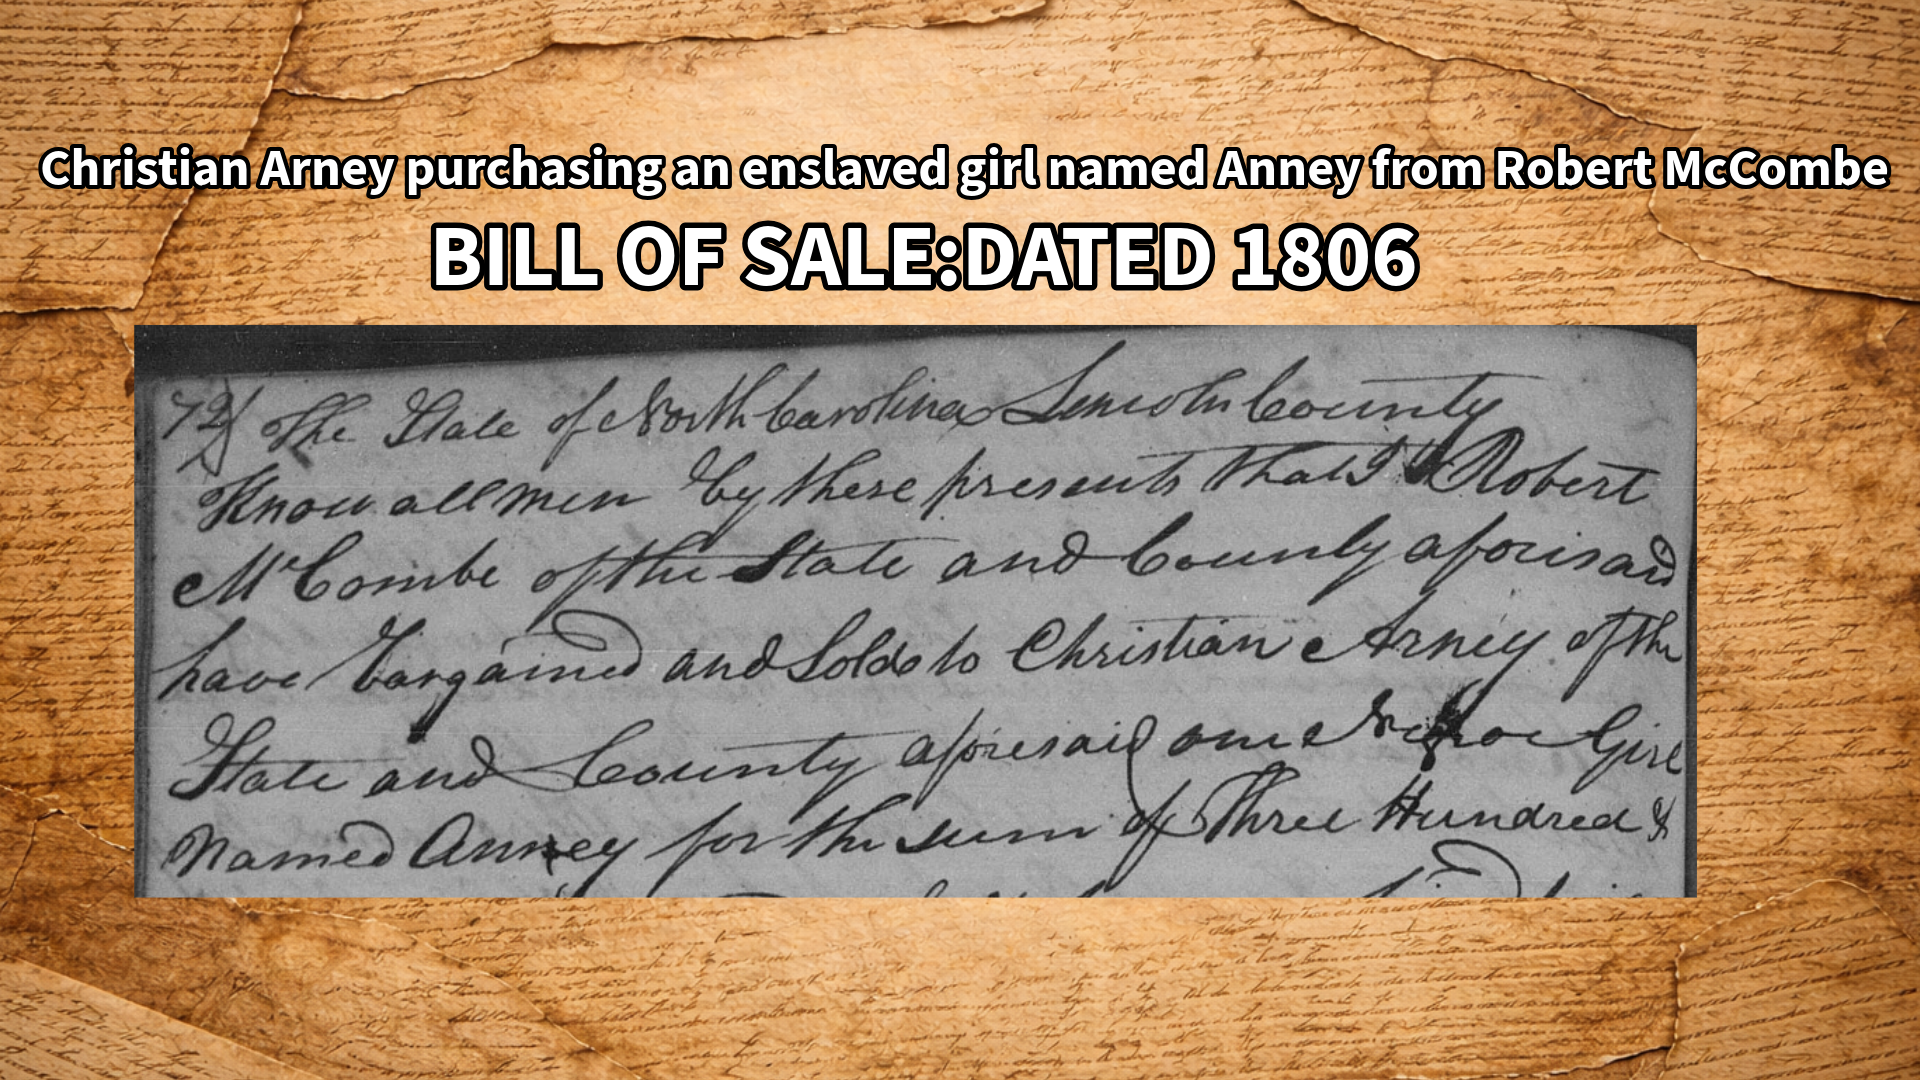 Christian Arney purchasing an enslaved girl named Anney from Robert McCombe
BILL OF SALE:DATED 1806
72 The State of North Carolina Lincoln County
Know all men by these presents that I Robert
McCombe of the State and County aforesaid
have bargained and Sold to Christian Arney of the
State and County aforesaid one Negroe Girl
Named Anney for the sum of Three Hundred &